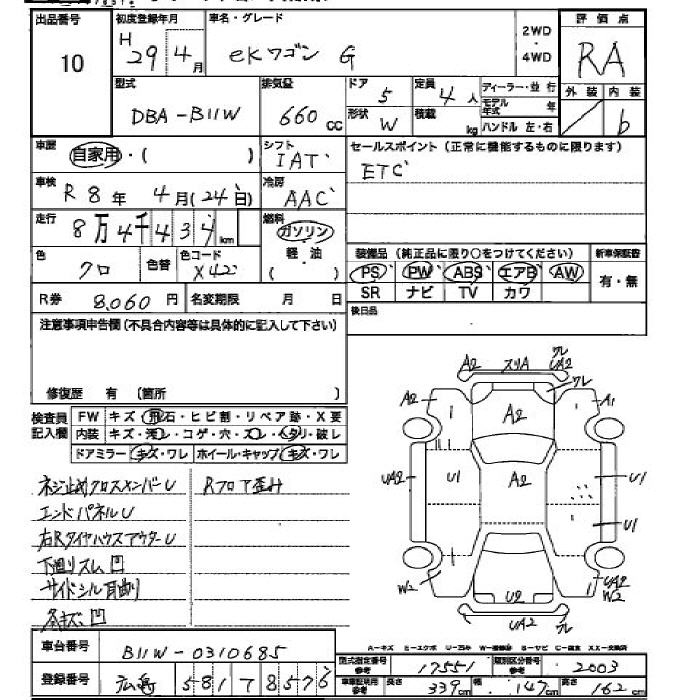 出品番号 初度登録年月 車名・グレード 2WD・4WD 評価点
10 H 29年4月 eKワゴン G RA
型式 排気量 ドア 5 定員 4人 ディーラー・並行 外装 内装
DBA-B11W 660cc 形状 W 積載 kg モデル年式 年 ハンドル 左・右 b
車歴 自家用・( ) シフト IAT セールスポイント(正常に機能するものに限ります)
車検 R 8年 4月(24日) 冷房 AAC ETC
走行 8万4千434km 燃料 ガソリン・軽油 ( )
色 クロ 色替 色コード X42 装備品(純正品に限り○をつけてください) 新車保証書
PS PW ABS エアB AW 有・無
R券 8,060円 名変期限 月 日 SR ナビ TV カワ
注意事項申告欄(不具合内容等は具体的に記入して下さい) 後日品
修復歴 有 (箇所 )
検査員記入欄 FW キズ・飛石・ヒビ割・リペア跡・X要
内装 キズ・汚レ・コゲ・穴・スレ・タリ・破レ
ドアミラー キズ・ワレ ホイール・キャップ キズ・ワレ
ネジ止めクロスメンバーU Rフロア歪み
エンドパネルU
右RタイヤハウスアウターU
下廻りスム 凹
サイドシル 耳曲り
凹
A2 スリA ワレ UA2
ワレ
A2 A2 A1
UA2 U1 A2 U1
U1
W2 U2 UA2 W2
UA2 ワレ
A-キズ E-エクボ U-凹み W-補修跡 S-サビ C-腐食 XX-交換済
車台番号 B11W-0310685
型式指定番号 参考 17551 類別区分番号 参考 2003
登録番号 広島 581 フ 8576
車庫証明用 参考 長さ 339cm 幅 147cm 高さ 162cm